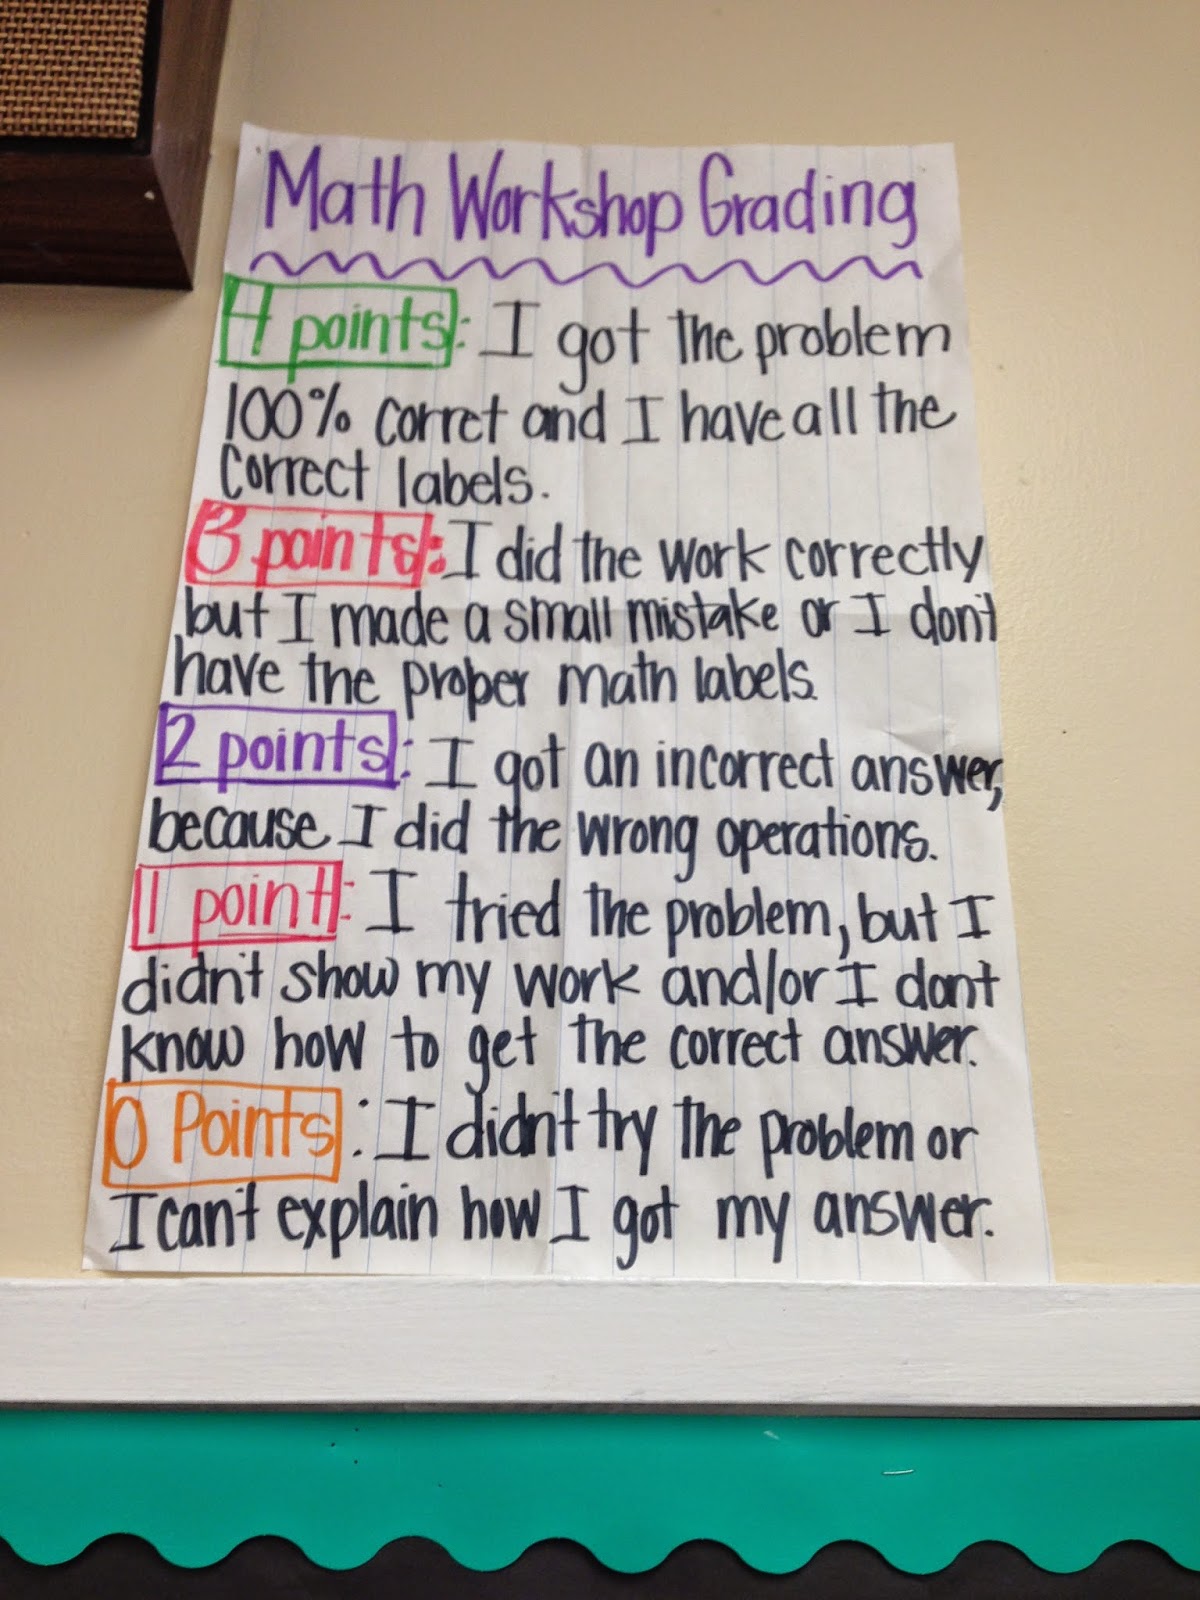 Math Workshop Grading
4 points: I got the problem
100% corret and I have all the
correct labels.
3 points: I did the work correctly
but I made a small mistake or I don't
have the proper math labels.
2 points: I got an incorrect answer,
because I did the wrong operations.
1 point: I tried the problem, but I
didn't show my work and/or I don't
know how to get the correct answer.
0 Points: I didn't try the problem or
I can't explain how I got my answer.